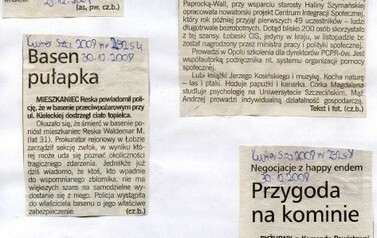 (as, pw, cz.b.)
Kurier Szcz 2009 nr 252 s4
30.12.2009
Basen
pułapka
MIESZKANIEC Reska powiadomił poli-
cję, że w basenie przeciwpożarowym przy
ul. Kieleckiej dostrzegł ciało topielca.
Okazało się, że śmierć w basenie po-
niósł mieszkaniec Reska Waldemar M.
(lat 31). Prokurator rejonowy w Łobzie
zarządził sekcję zwłok, w wyniku któ-
rej może uda się poznać okoliczności
tragicznego zdarzenia. Jednakże już
dziś wiadomo, że ktoś, kto wpadnie
do wspomnianego zbiornika, nie ma
większych szans na samodzielne wy-
dostanie się z niego. Policja wystąpiła
do właściciela basenu o jego właściwe
zabezpieczenie. (cz.b.)
Paprocką-Wall, przy wsparciu starosty Haliny Szymańskiej
opracowała nowatorski projekt Centrum Integracji Społecznej,
który rok później przyjął pierwszych 49 uczestników – ludzi
długotrwale bezrobotnych. Dotąd blisko 200 osób skorzystało
z tej szansy. Łobeski CIS, jedyny w kraju, w listopadzie
został nagrodzony przez ministra pracy i polityki społecznej.
Prowadzi w Opolu szkolenia dla dyrektorów PCPR-ów. Jest
współautorką podręcznika nt. systemu organizacji pomocy
społecznej.
Lubi książki Jerzego Kosińskiego i muzykę. Kocha naturę
– las i ptaki. Hoduje papużki i kanarka. Córka Magdalena
studiuje psychologię na Uniwersytecie Szczecińskim. Mąż
Andrzej prowadzi indywidualną działalność gospodarczą.
Tekst i fot. (cz.b.)
Kurier Szcz 2009 nr 252 s4
Negocjacje z happy endem
30.12.2009
Przygoda
na kominie